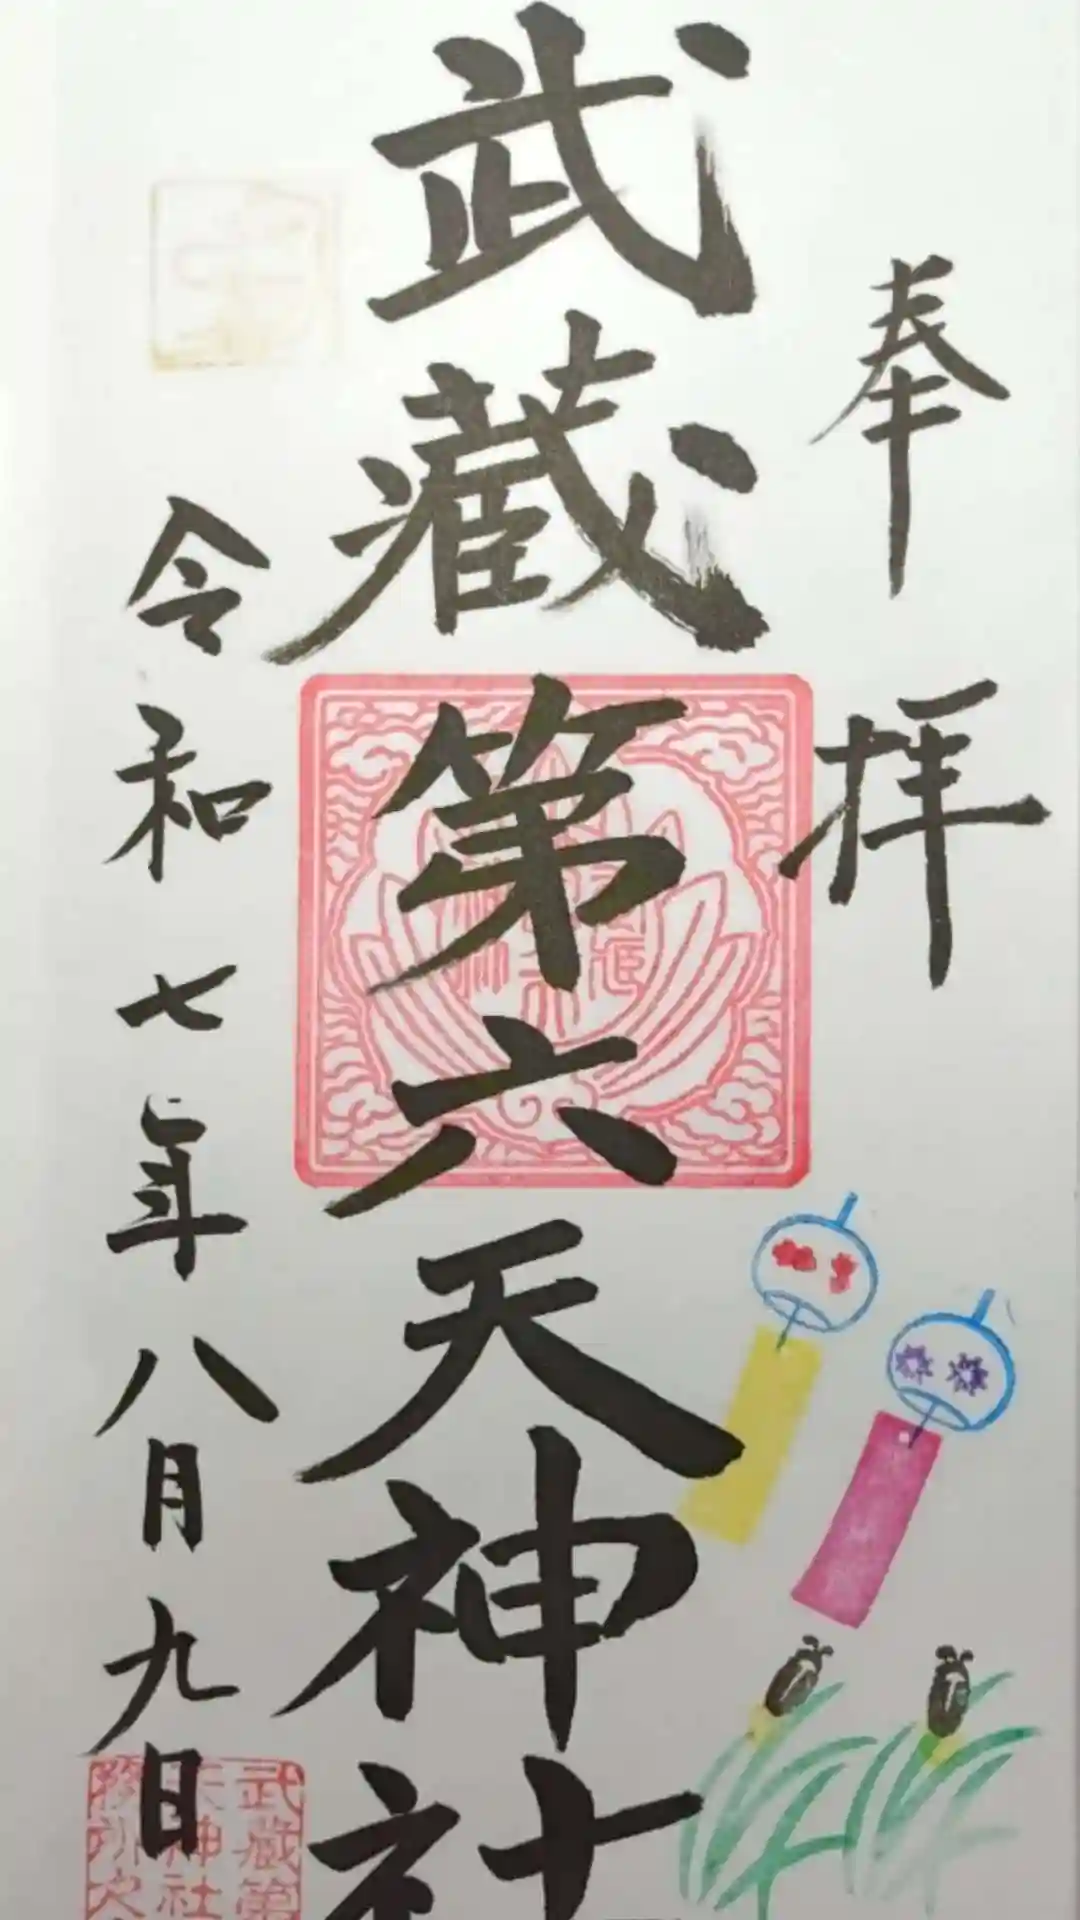 奉拝
武蔵第六天神社
令和七年八月九日
武蔵第
天神社
務所之